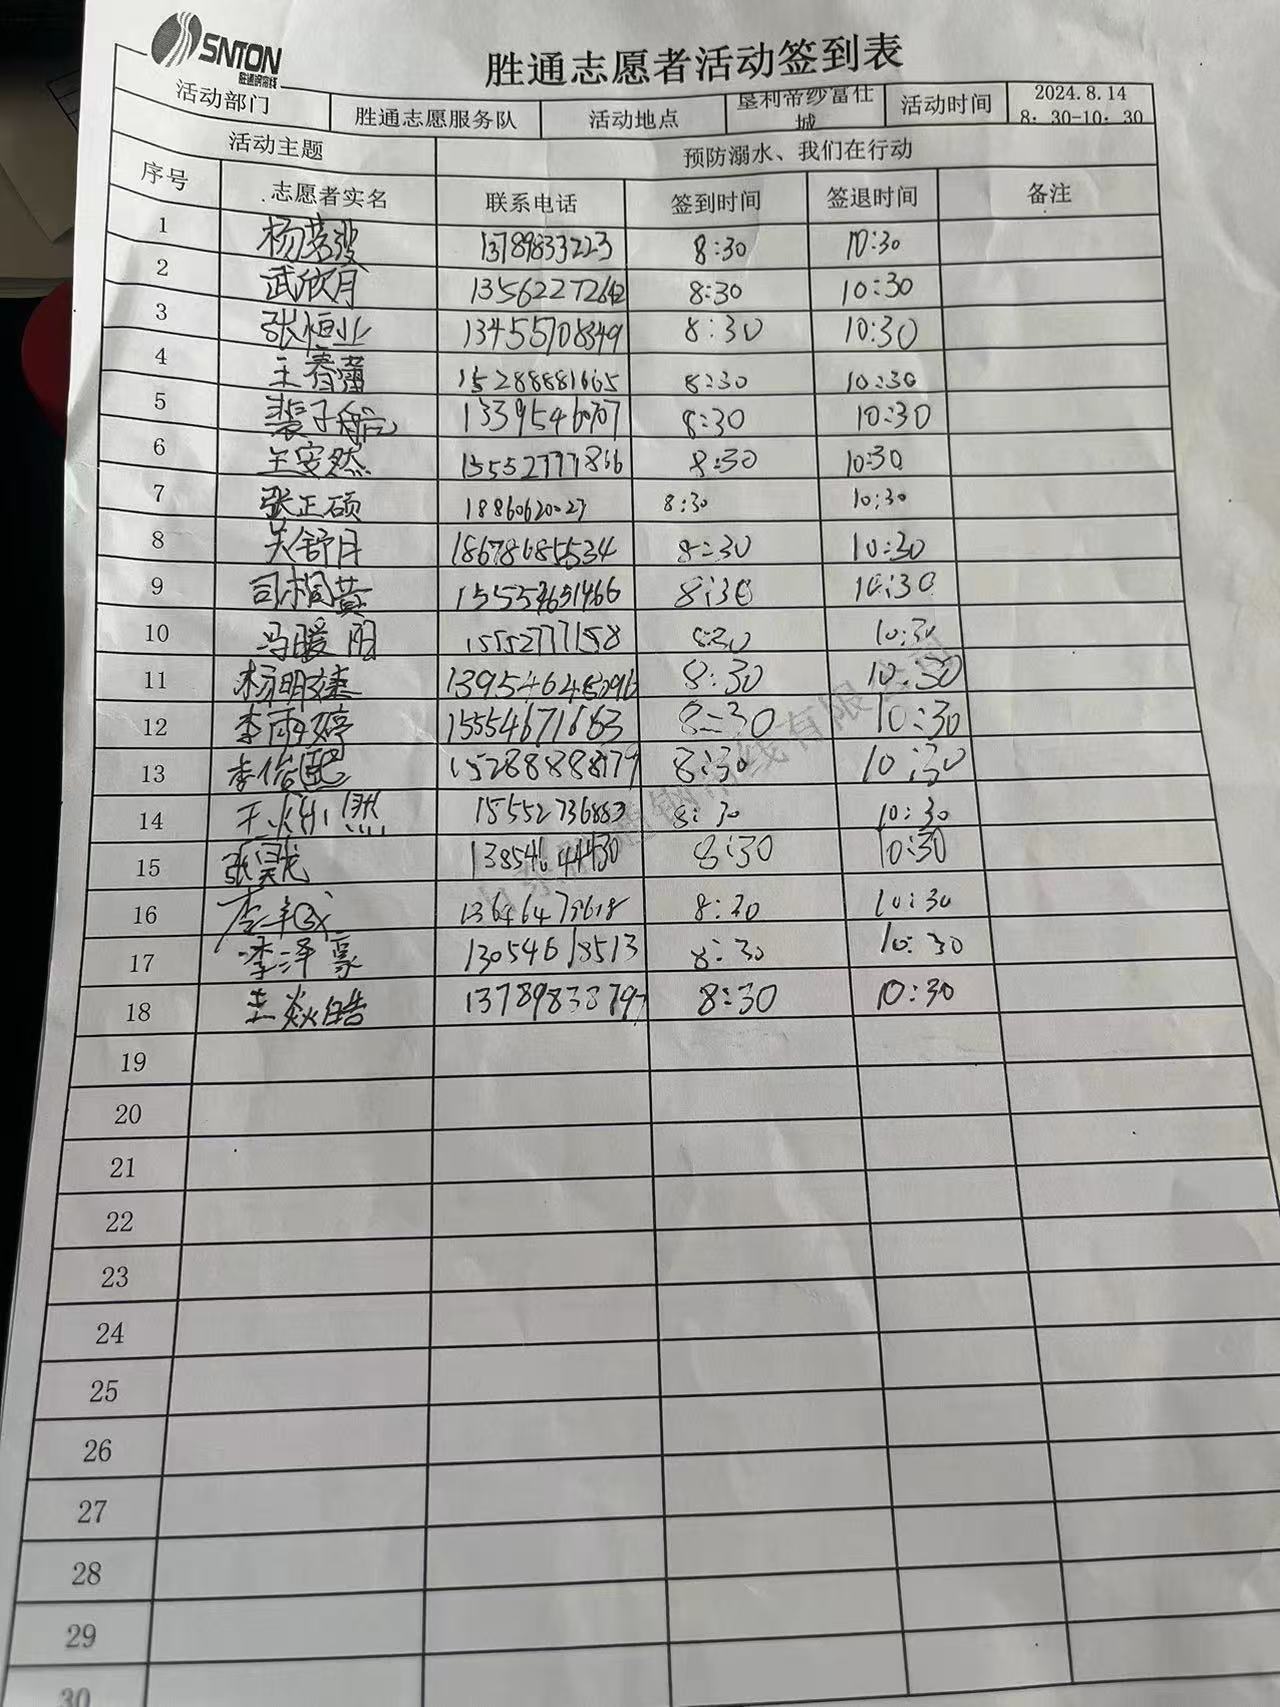 SNTON
胜通钢帘线
胜通志愿者活动签到表
活动部门 胜通志愿服务队 活动地点 垦利帝纱富仕城 活动时间 2024.8.14 8:30-10:30
活动主题 预防溺水、我们在行动
序号 志愿者实名 联系电话 签到时间 签退时间 备注
1 13789833223 8:30 10:30
2 武欣月 13562272642 8:30 10:30
3 张恒业 13455708849 8:30 10:30
4 15288881665 8:30 10:30
5 裴子航 13395460707 8:30 10:30
6 王安然 15552777866 8:30 10:30
7 张正硕 18860620027 8:30 10:30
8 吴舒月 18678685534 8:30 10:30
9 8:30 10:30
10 冯暖阳 15552777158 8:30 10:30
11 8:30 10:30
12 李雨婷 15554671683 8:30 10:30
13 8:30 10:30
14 15552736883 8:30 10:30
15 13854644430 8:30 10:30
16 8:30 10:30
17 李泽豪 13054618513 8:30 10:30
18 王焱皓 8:30 10:30
19
20
21
22
23
24
25
26
27
28
29
30